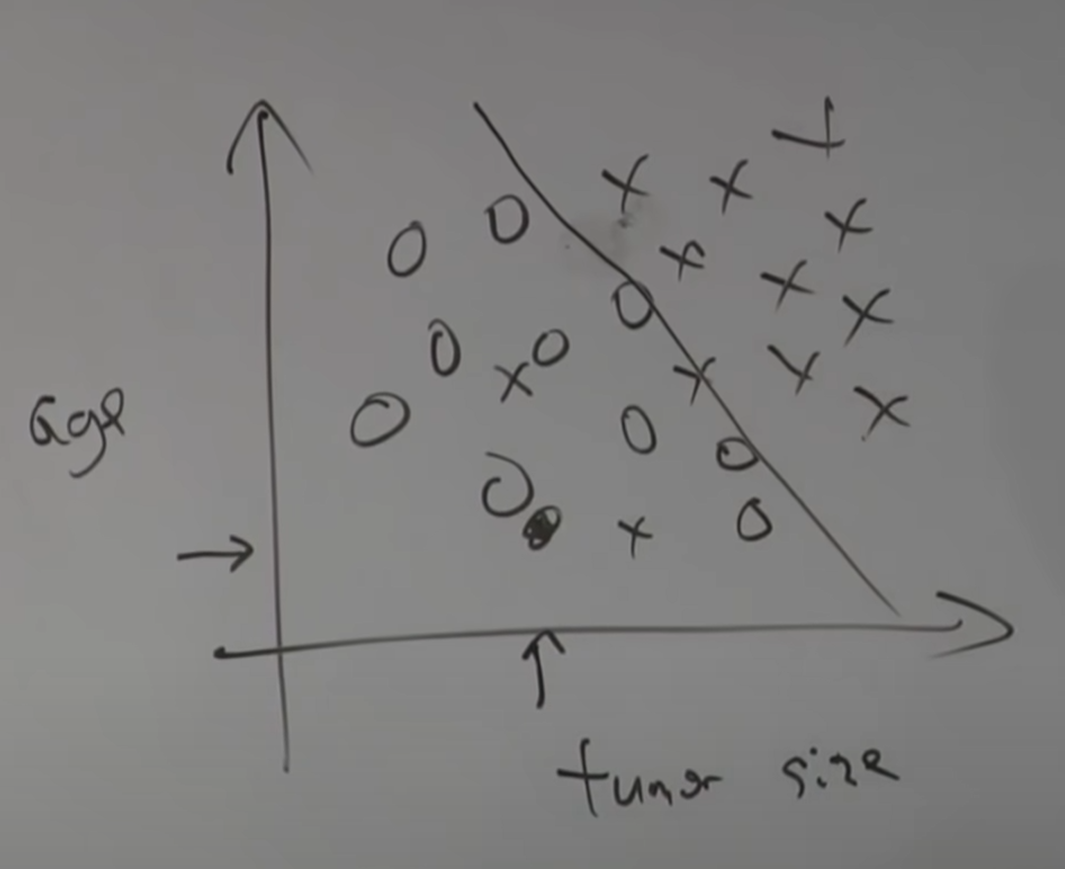 age
tumor size